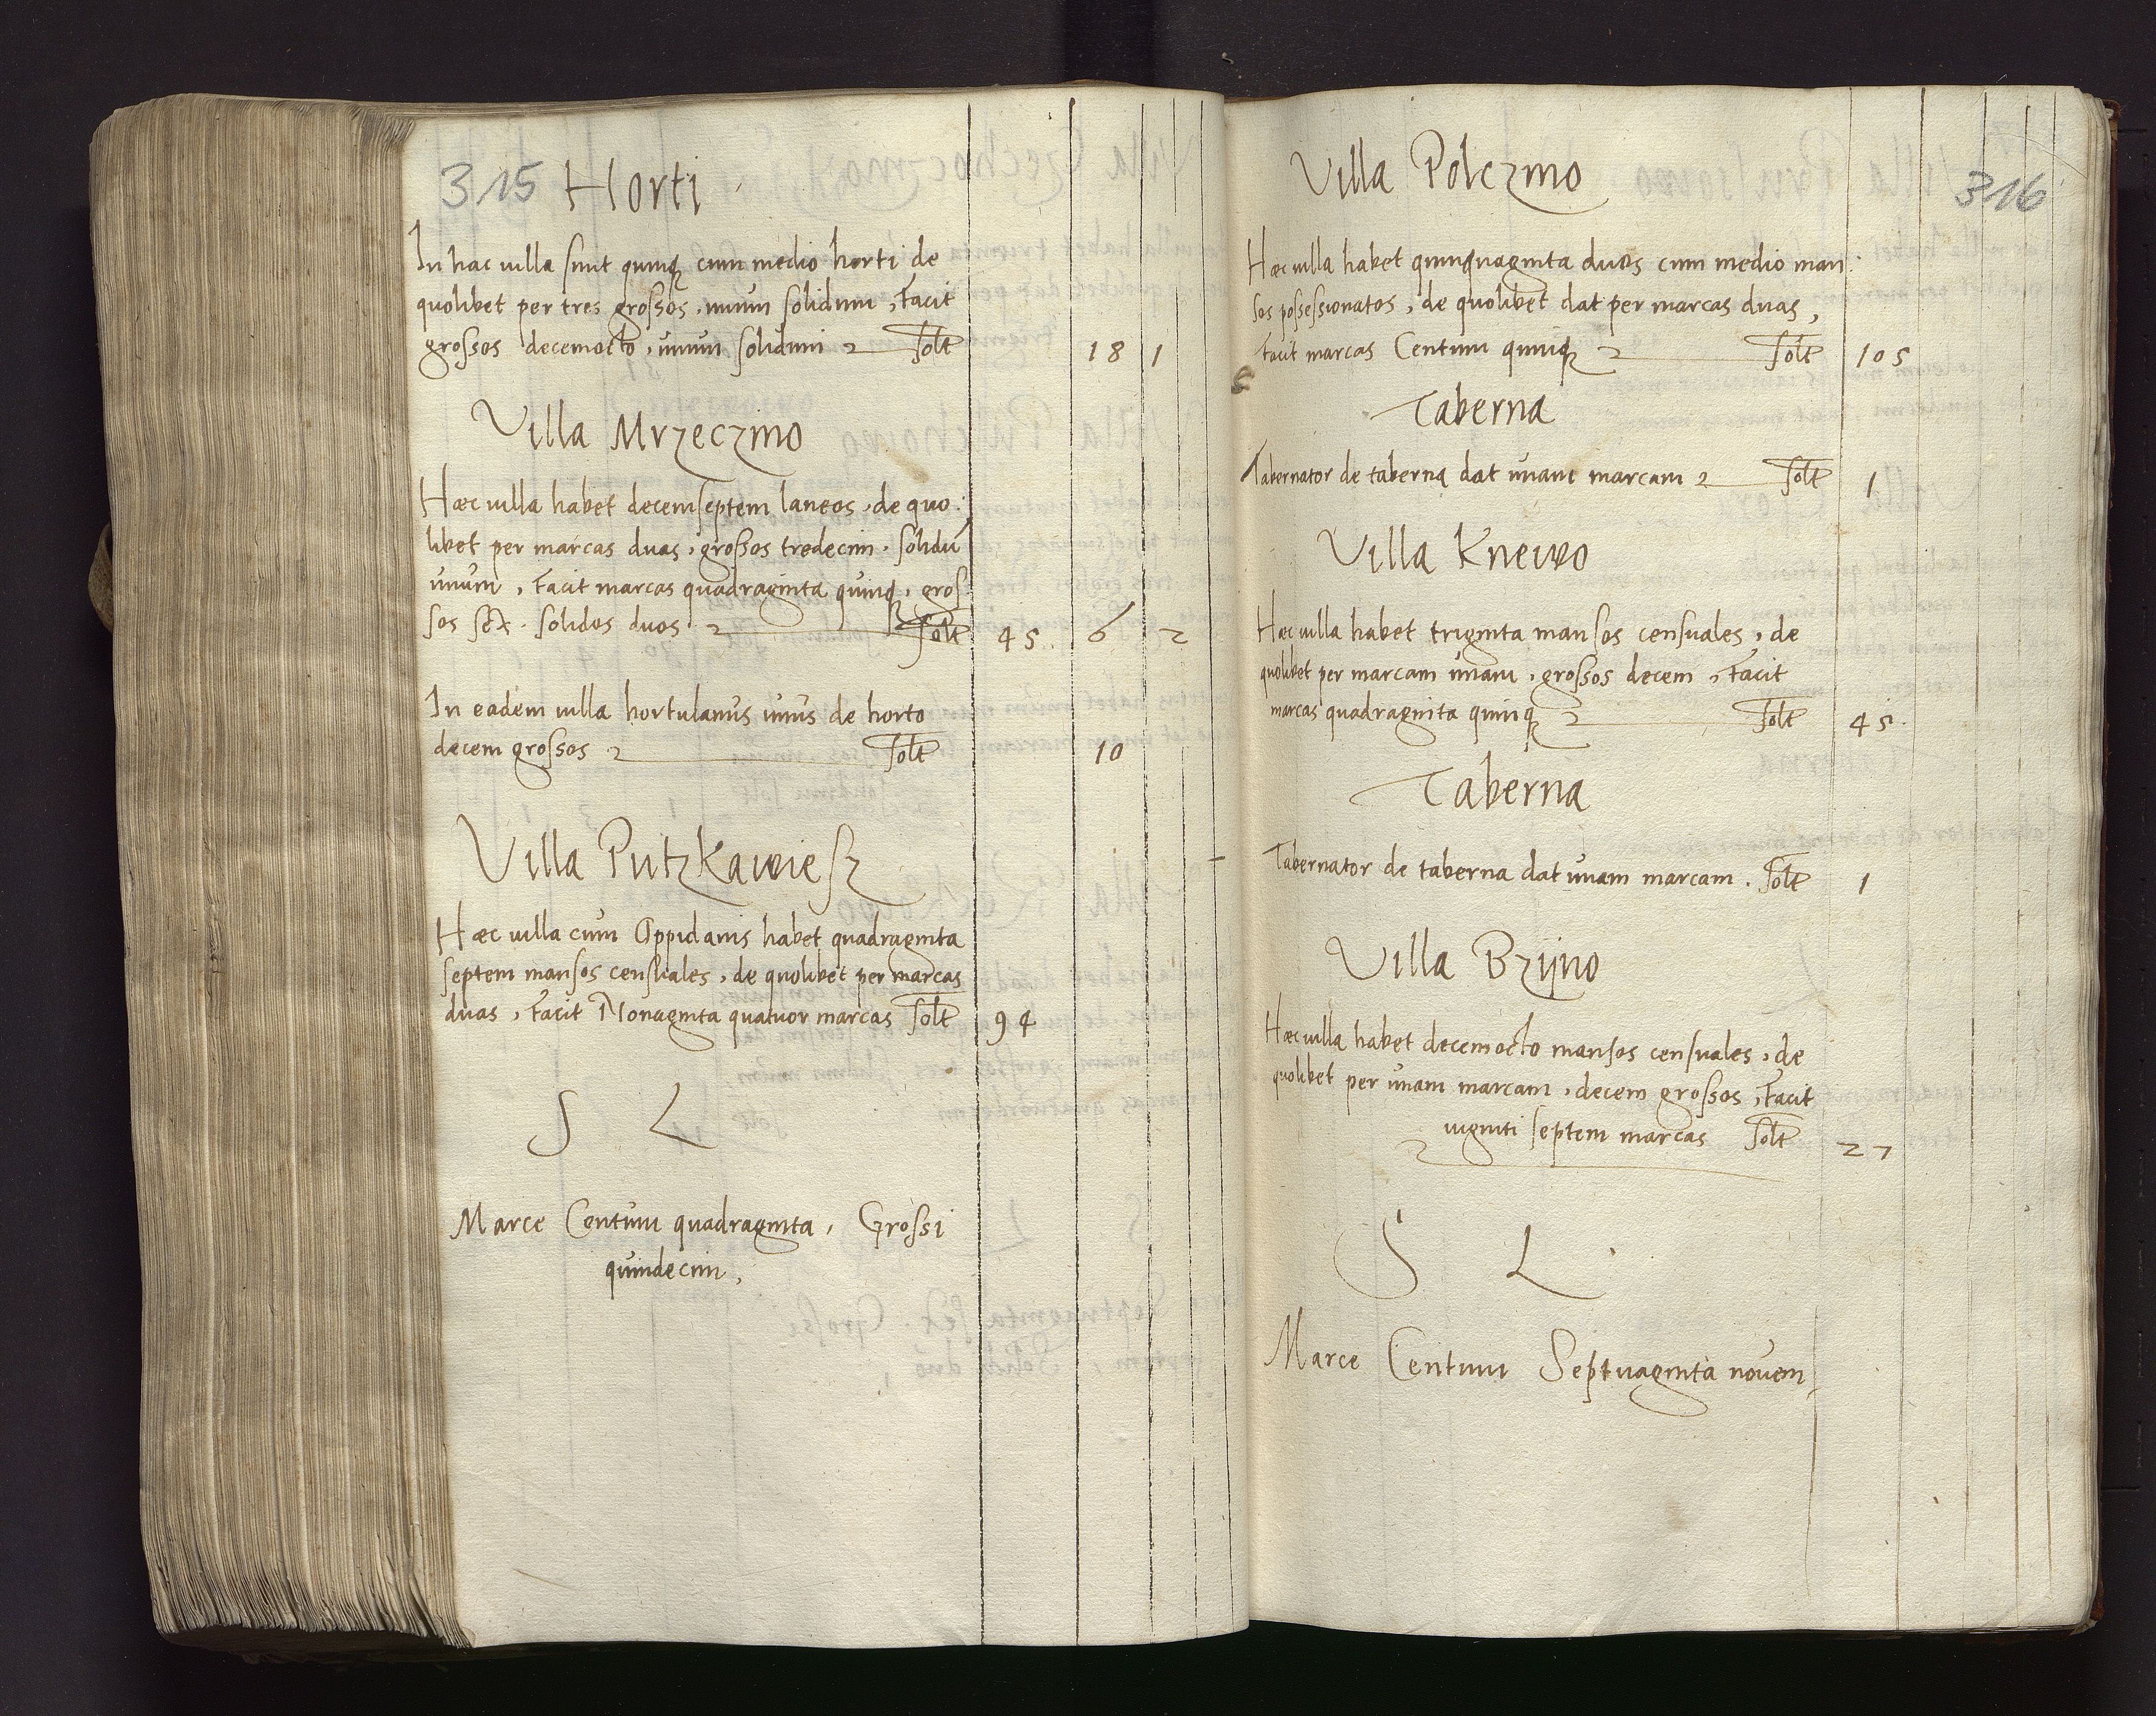 315 Horti
In hac uilla sunt quinq cum medio horti de
quolibet per tres grossos, unum solidum, facit
grossos decemocto, unum solidum Solt 18 1
Villa Mrzeczino
Hæc uilla habet decemseptem laneos, de quo:
libet per marcas duas, grossos tredecim, solidū
unum, facit marcas quadraginta quinq, gros
sos sex. solidos duos Solt 45. 6 2
In eadem uilla hortulanus unus de horto
decem grossos Solt 10
Villa Putzkawiesz
Hæc uilla cum Oppidanis habet quadraginta
septem mansos censuales, de quolibet per marcas
duas, facit Nonaginta quatuor marcas Solt 94
S L
Marce Centum quadraginta, Grossi
quindecim,
316
Villa Polczino
Hæc uilla habet quinquaginta duos cum medio man:
sos possessionatos, de quolibet dat per marcas duas,
facit marcas Centum quinq Solt 105
Taberna
Tabernator de taberna dat unam marcam Solt 1
Villa Knewo
Hæc uilla habet triginta mansos censuales, de
quolibet per marcam unam, grossos decem, facit
marcas quadraginta quinq Solt 45.
Taberna
Tabernator de taberna dat unam marcam. Solt 1
Villa Brzyno
Hæc uilla habet decemocto mansos censuales, de
quolibet per unam marcam, decem grossos, facit
uiginti septem marcas Solt 27
S L
Marce Centum Septuaginta nouem